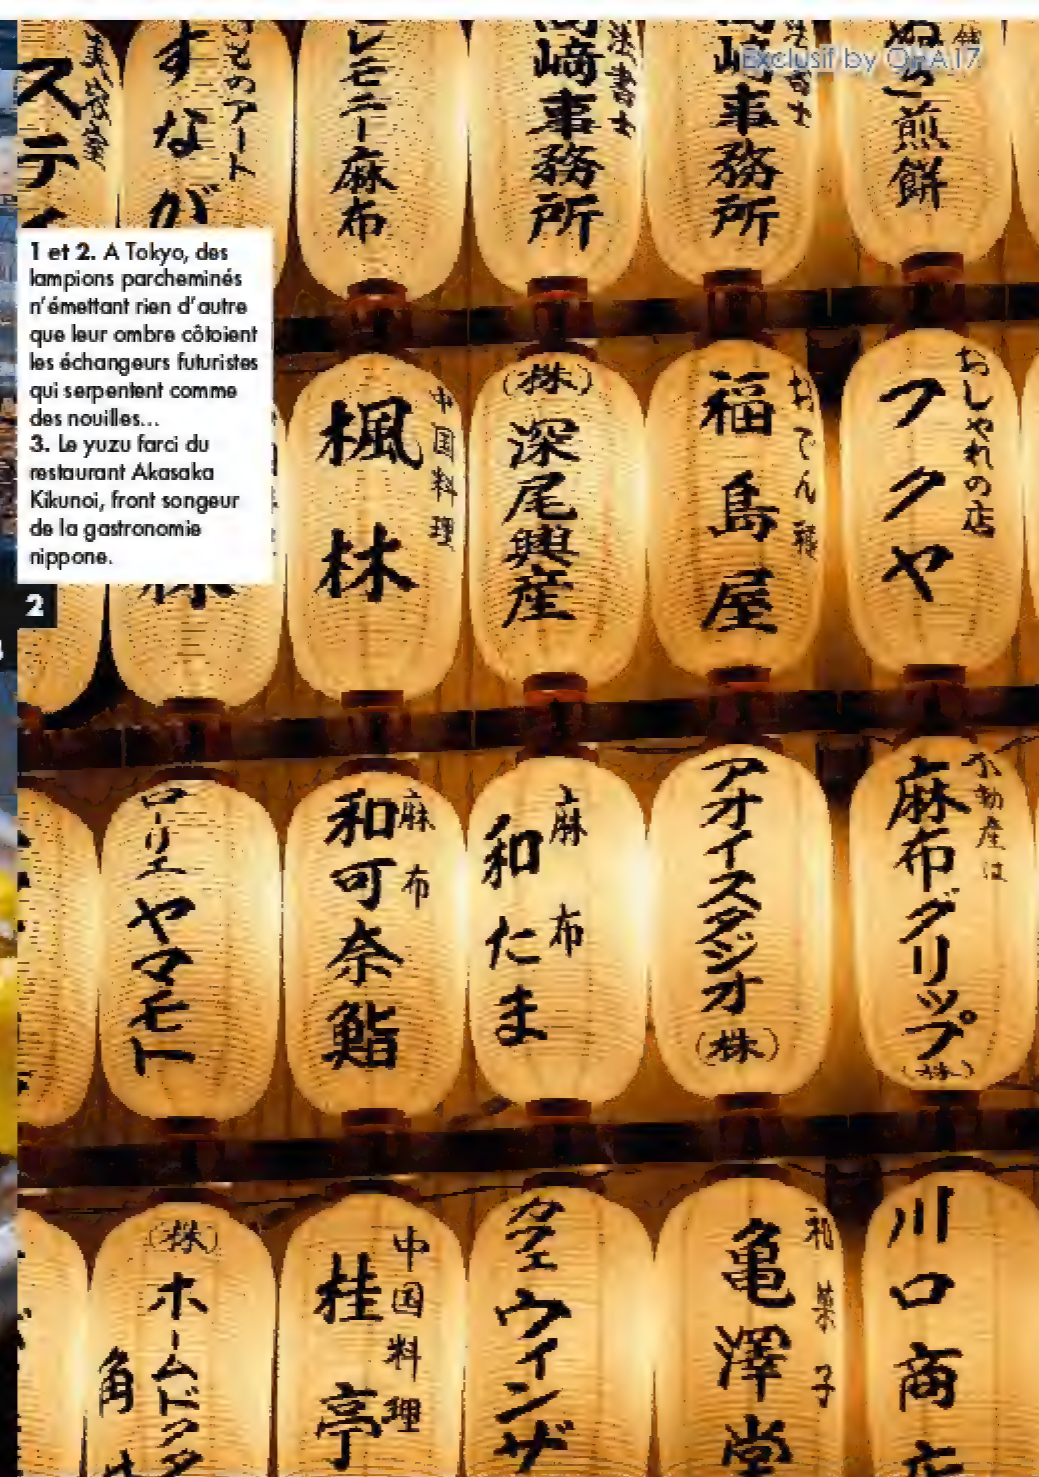 Exclusif by OHA17
1 et 2. A Tokyo, des
lampions parcheminés
n'émettant rien d'autre
que leur ombre côtoient
les échangeurs futuristes
qui serpentent comme
des nouilles...
3. Le yuzu farci du
restaurant Akasaka
Kikunoi, front songeur
de la gastronomie
nippone.
2
美容室
ステ
ものアート
すなが
レモニー麻布
書士
崎事務所
崎事務所
煎餅
中国料理
楓林
(株)
深尾興産
おでん種
福島屋
おしゃれの店
フクヤ
ローリエヤマモト
麻布
和可奈鮨
麻布
和たま
アオイスタジオ
(株)
不動産は
麻布グリップ
(株)
(株)
ホームドクタ
角
中国料理
桂亭
カフェウィンザ
和菓子
亀澤堂
川口商店